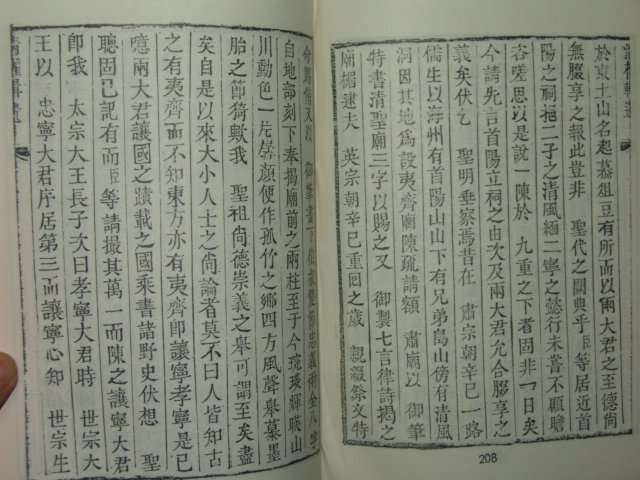 於東土山名起慕俎豆有所而以兩大君之至德尙
無腏享之報此豈非 聖代之闕典乎臣等居近首
陽之祠挹二子之清風緬二寧之懿行未嘗不顧瞻
咨嗟思以是說一陳於 九重之下者固非一日矣
今請先言首陽立祠之由次及兩大君允合腏享之
義矣伏乞 聖明垂察焉昔在 肅宗朝辛巳一路
儒生以海州有首陽山山下有兄弟島山傍有清風
洞因其地爲設夷齊廟陳疏請額 肅廟以 御筆
特書清聖廟三字以賜之又 御製七言律詩揭之
廟楣逮夫 英宗朝辛巳重回之歲 親綴祭文特
208
自地部刻下奉揭廟前之兩柱至于今琬琰輝暎山
川動色一片孱顏便作孤竹之鄉四方風聲擧慕墨
胎之節猗歟我 聖祖尙德崇義之擧可謂至矣盡
矣自是以來大小人士之尙論者莫不曰人皆知古
之有夷齊而不知東方亦有夷齊卽讓寧孝寧是已
噫兩大君讓國之蹟載之國乘書諸野史伏想 聖
聰固已記有而臣等請撮其萬一而陳之讓寧大君
卽我 太宗大王長子次曰孝寧大君時 世宗大
王以 忠寧大君序居第三而讓寧心知 世宗生